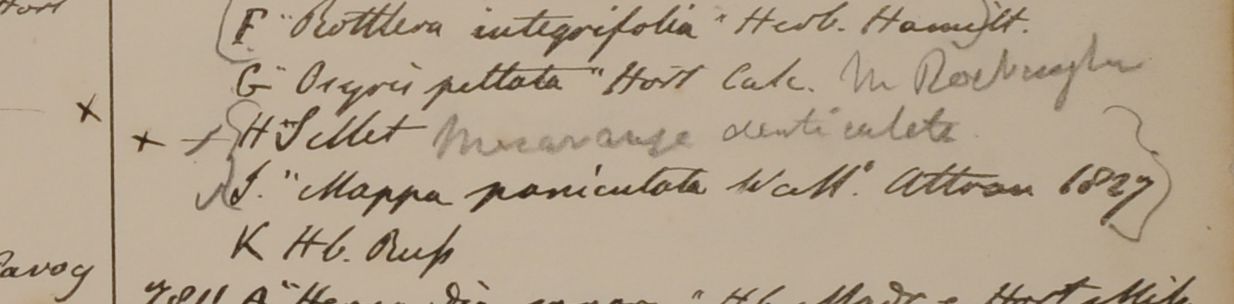 F "Rottlera integrifolia" Herb. Hamilt.
G "Osyris peltata" Hort Calc. M Roxburghii
H Sillet Macaranga denticulata
I. "Mappa paniculata Wall". Attran 1827
K Hb. Russ
7811 A "